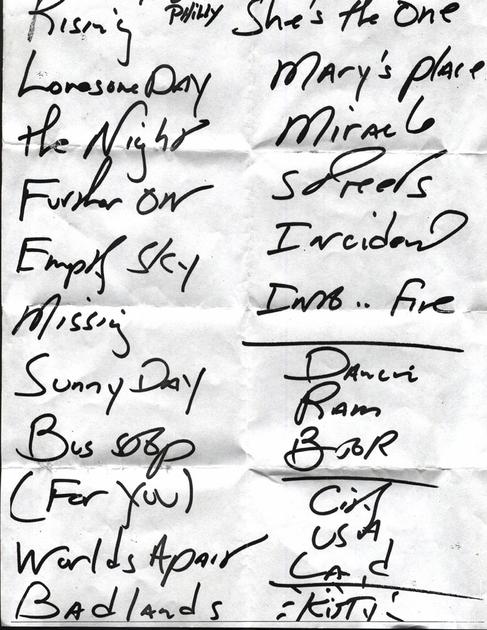 Rising
Philly
Lonesome Day
the Night
Further on
Empty Sky
Missing
Sunny Day
Bus stop
(For You)
Worlds Apart
Badlands
She's the One
Mary's place
Miracle
Streets
Incident
Into .. Fire
Dancin
Ram
BTOR
City
USA
Land
Kitty